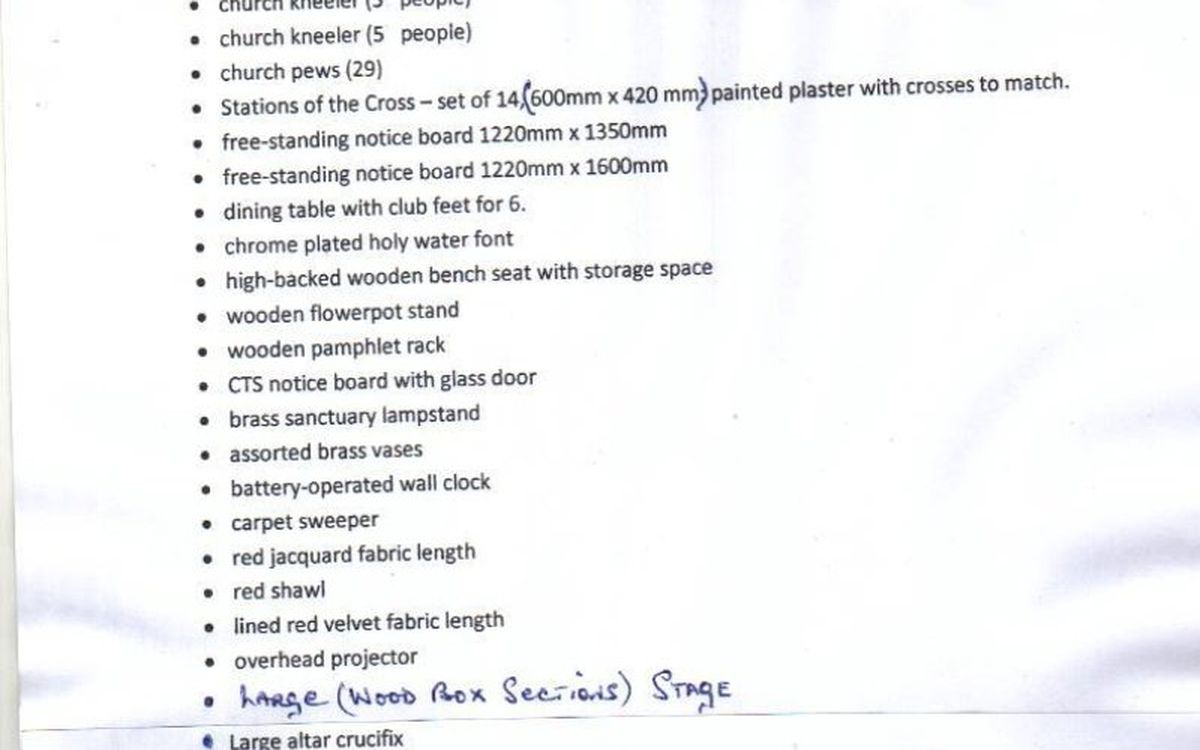 • church kneeler (3 people)
• church kneeler (5 people)
• church pews (29)
• Stations of the Cross – set of 14,(600mm x 420 mm) painted plaster with crosses to match.
• free-standing notice board 1220mm x 1350mm
• free-standing notice board 1220mm x 1600mm
• dining table with club feet for 6.
• chrome plated holy water font
• high-backed wooden bench seat with storage space
• wooden flowerpot stand
• wooden pamphlet rack
• CTS notice board with glass door
• brass sanctuary lampstand
• assorted brass vases
• battery-operated wall clock
• carpet sweeper
• red jacquard fabric length
• red shawl
• lined red velvet fabric length
• overhead projector
• LARGE (WOOD BOX SECTIONS) STAGE
• Large altar crucifix